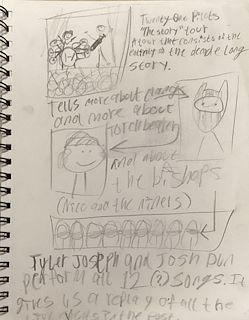 Twenty-One Pilots
"The story" tour
A tour that consists of the
entirety of the decade long
story.
Tells more about
and more about
Torchbearer
and about
the bishops
(Nico and the niners)
Tyler Joseph and Josh Dun
perform all 12 (?) songs. It
gives us a replay of all the
in the past